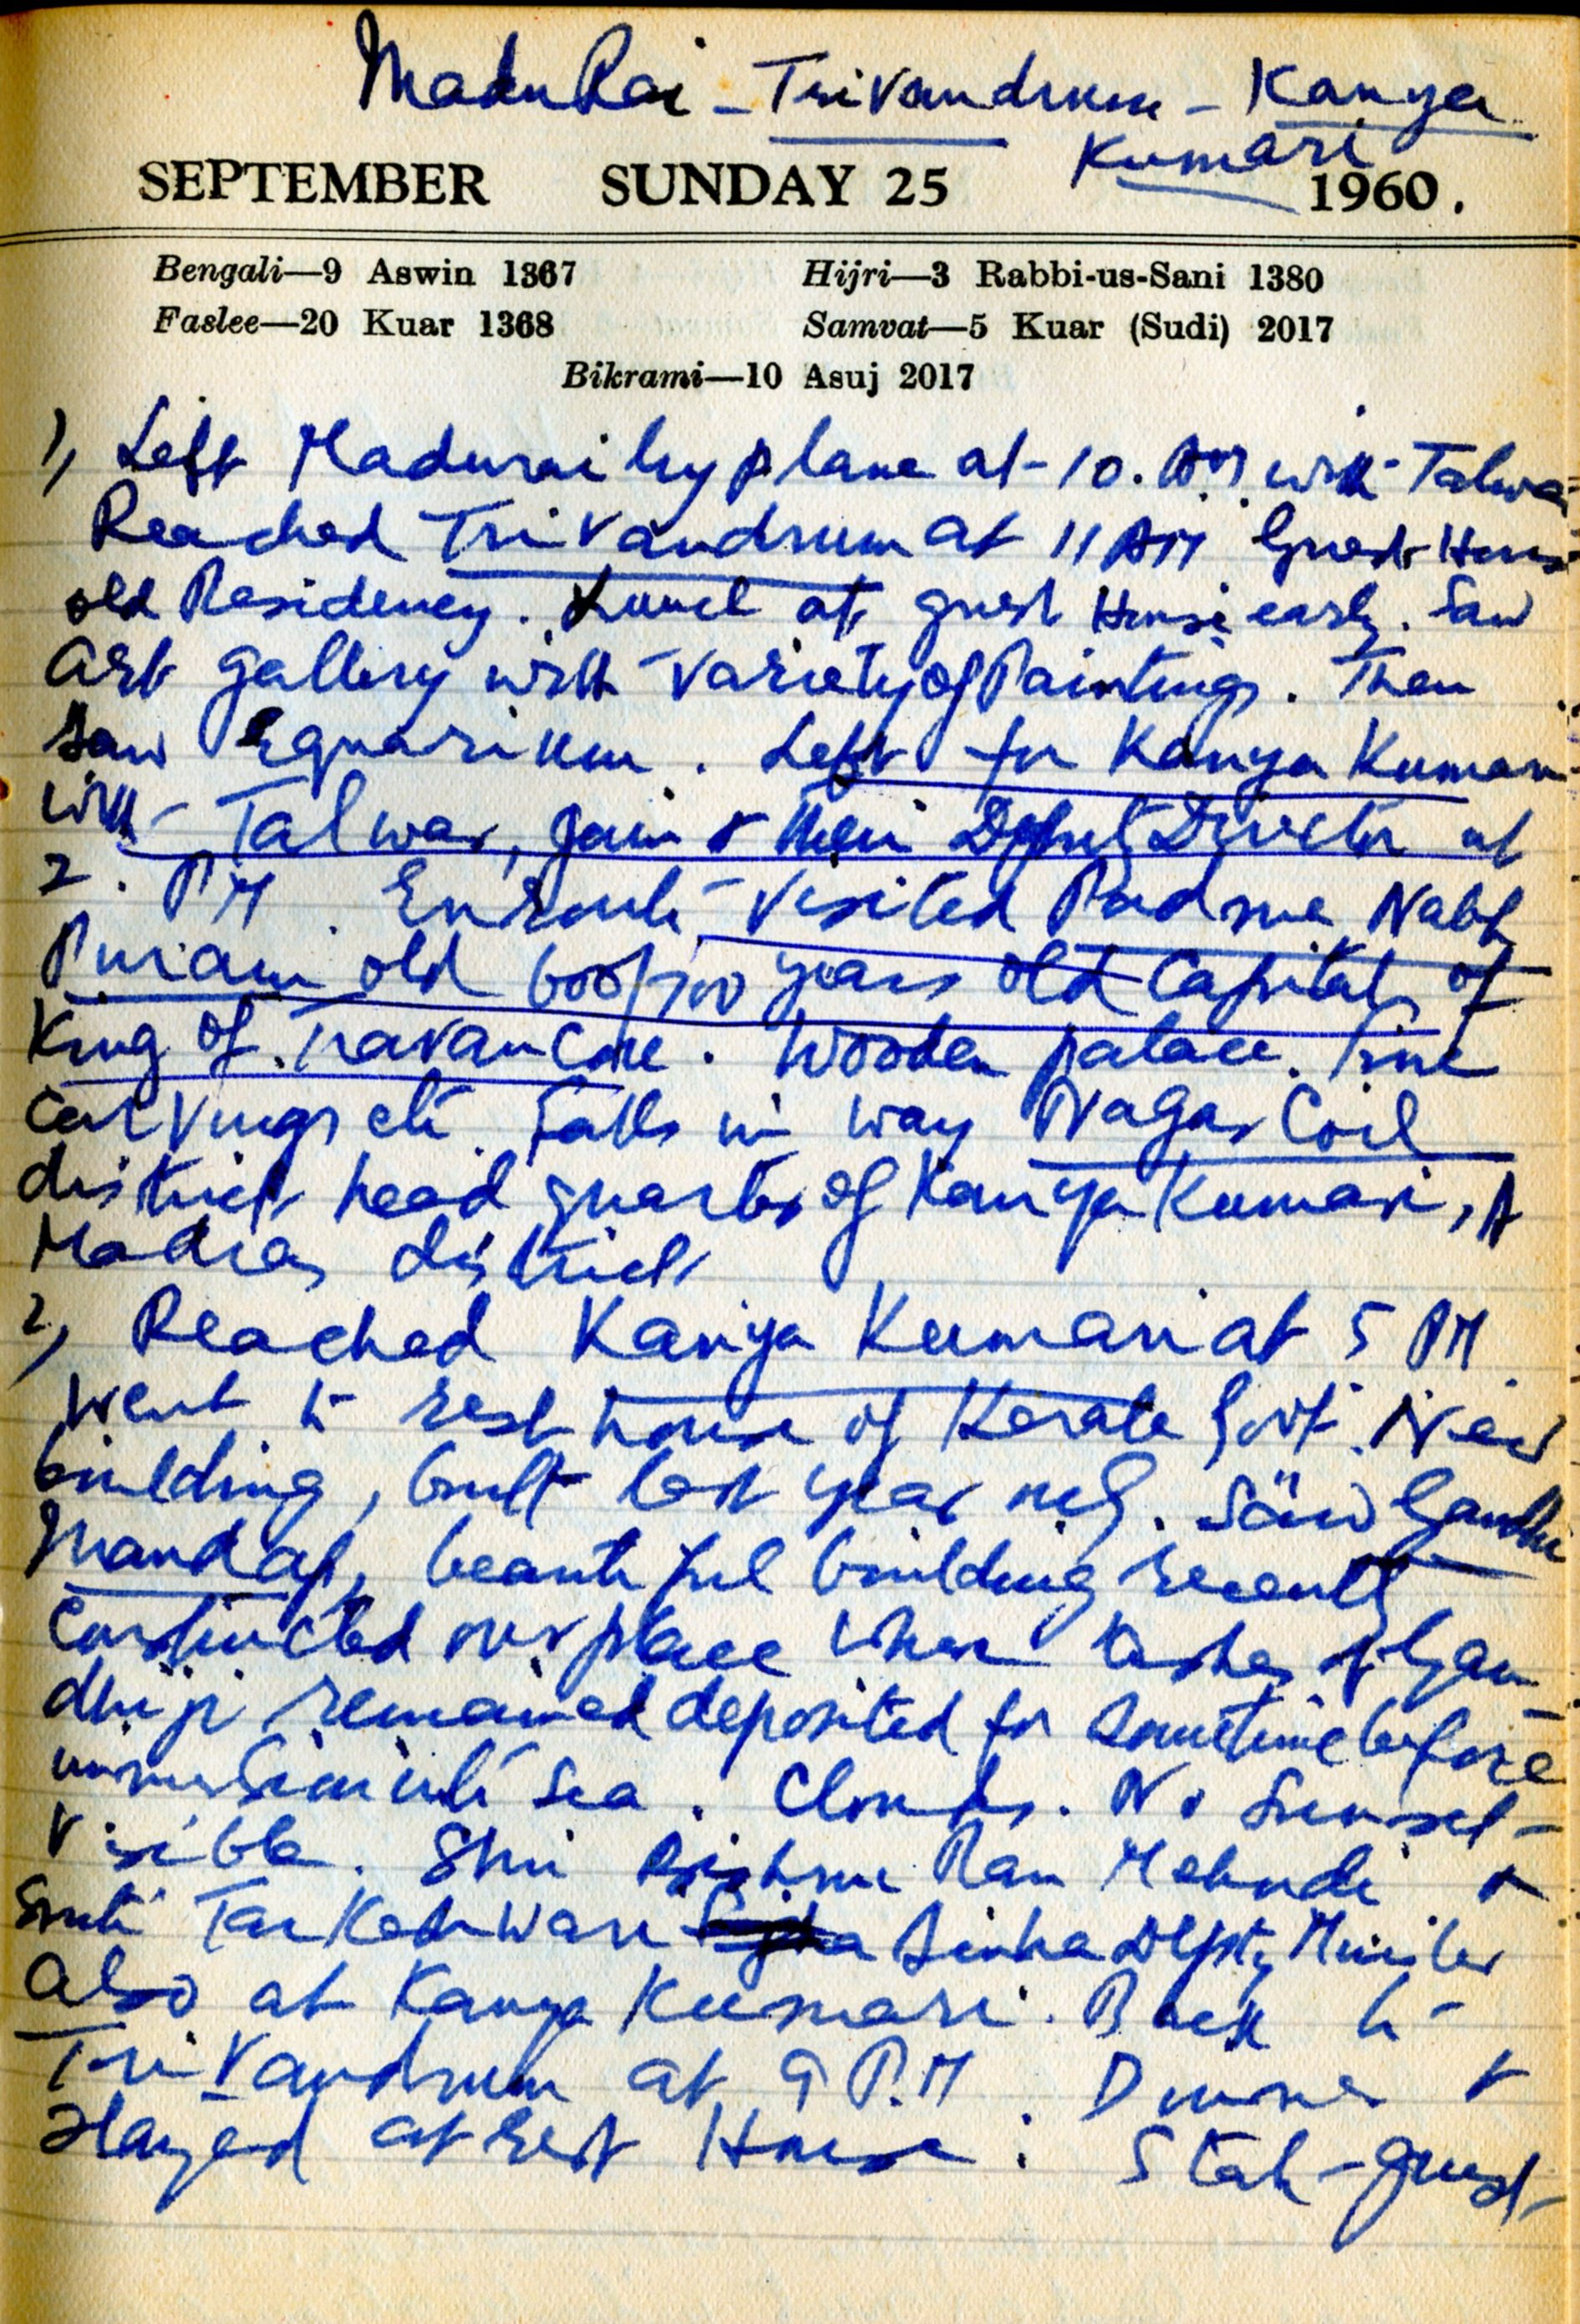 Madu Rai - Trivandrum - Kanya
Kumari
SEPTEMBER SUNDAY 25 1960.
Bengali—9 Aswin 1367 Hijri—3 Rabbi-us-Sani 1380
Faslee—20 Kuar 1368 Samvat—5 Kuar (Sudi) 2017
Bikrami—10 Asuj 2017
1) Left Madurai by plane at 10. AM. with Talwar
Reached Trivandrum at 11 AM Guest House
old Residency. Lunch at guest House early. Saw
Art gallery with variety of Paintings. Then
saw Equarium. Left for Kanya Kumari
with Talwar, Jain & their Deputy Director at
2. PM. Enroute visited Padma Nabh
Puram old 600/700 years old Capital of
King of Travancore. Wooden palace. Fine
carvings etc. Falls in way Nagar Coil
district head quarter of Kanya Kumari, A
Madras district
2) Reached Kanya Kumari at 5 PM.
Went to rest house of Kerala Govt. New
building, built last year only. Saw Gandhi
Mandap, beautiful building recently
constructed over place where ashes of Gan
dhiji remained deposited for sometime before
in sea. Clouds. No Sunset
visible. Shri Ram &
Smti Tarkeshwari Sinha Depty Minister
also at Kanya Kumari. Back to
Trivandrum at 9 P.M. Dinner &
stayed at Rest House. State guest